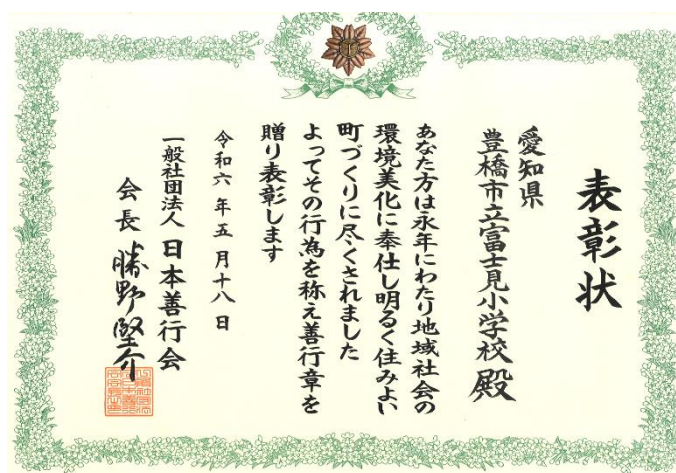 表彰状
愛知県
豊橋市立富士見小学校 殿
あなた方は永年にわたり地域社会の
環境美化に奉仕し明るく住みよい
町づくりに尽くされました
よってその行為を称え善行章を
贈り表彰します
令和六年五月十八日
一般社団法人 日本善行会
会長 勝野堅介